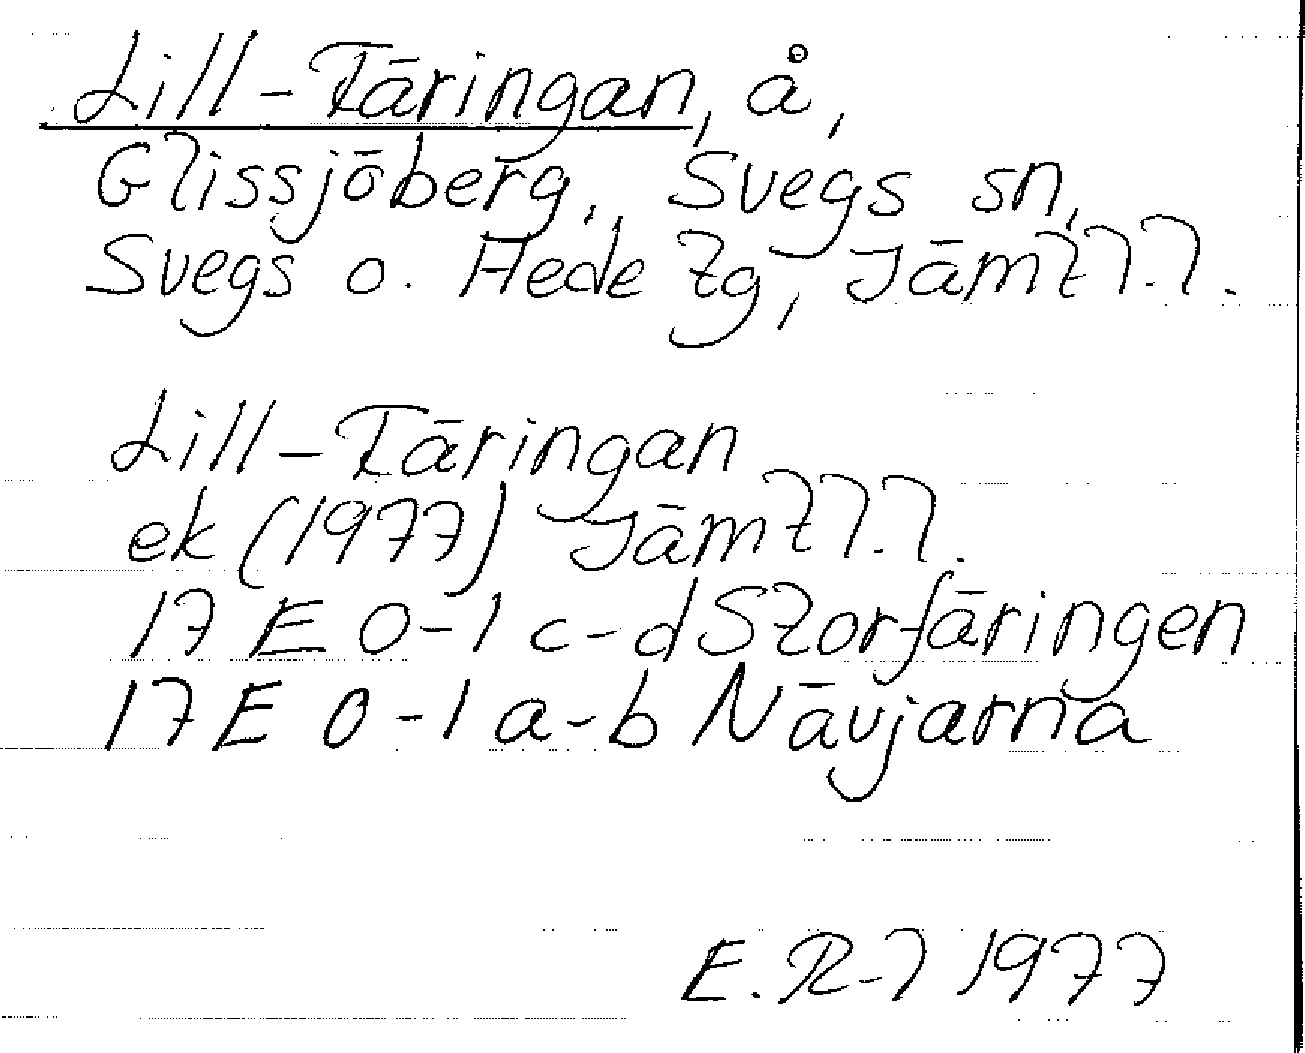 Lill-Färingan, å,
Glissjöberg, Svegs sn,
Svegs o. Hede tg, Jämtl.l.
Lill-Färingan
ek (1977) Jämtl.l.
17 E 0-1 c-d Storfäringen
17 E 0-1 a-b Nävjarna
E. R-l 1977